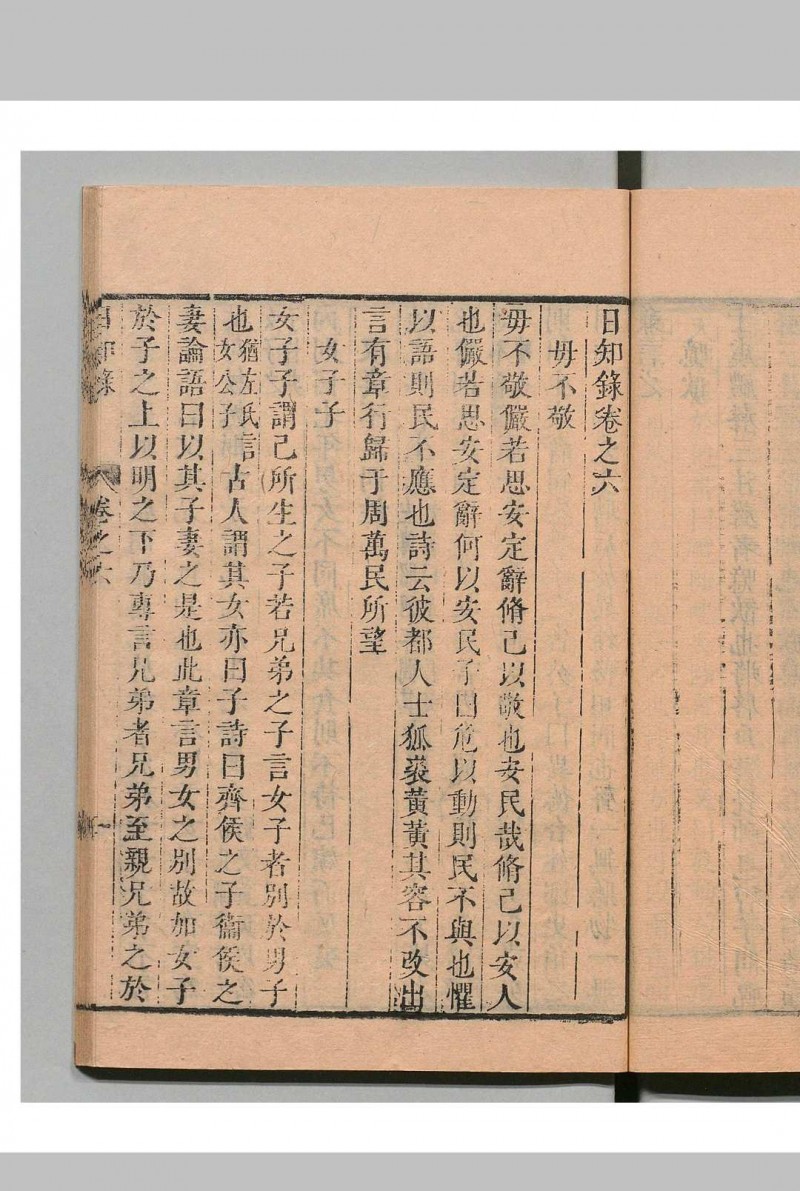 日知錄卷之六
毋不敬
毋不敬儼若思安定辭脩己以敬也安民哉脩己以安人
也儼若思安定辭何以安民子曰危以動則民不與也懼
以語則民不應也詩云彼都人士狐裘黃黃其容不改出
言有章行歸于周萬民所望
女子子
女子子謂己所生之子若兄弟之子言女子者別於男子
也猶左氏言女公子古人謂其女亦曰子詩曰齊侯之子衞侯之
妻論語曰以其子妻之是也此章言男女之別故加女子
於子之上以明之下乃專言兄弟者兄弟至親兄弟之於
日知錄 卷之六 一